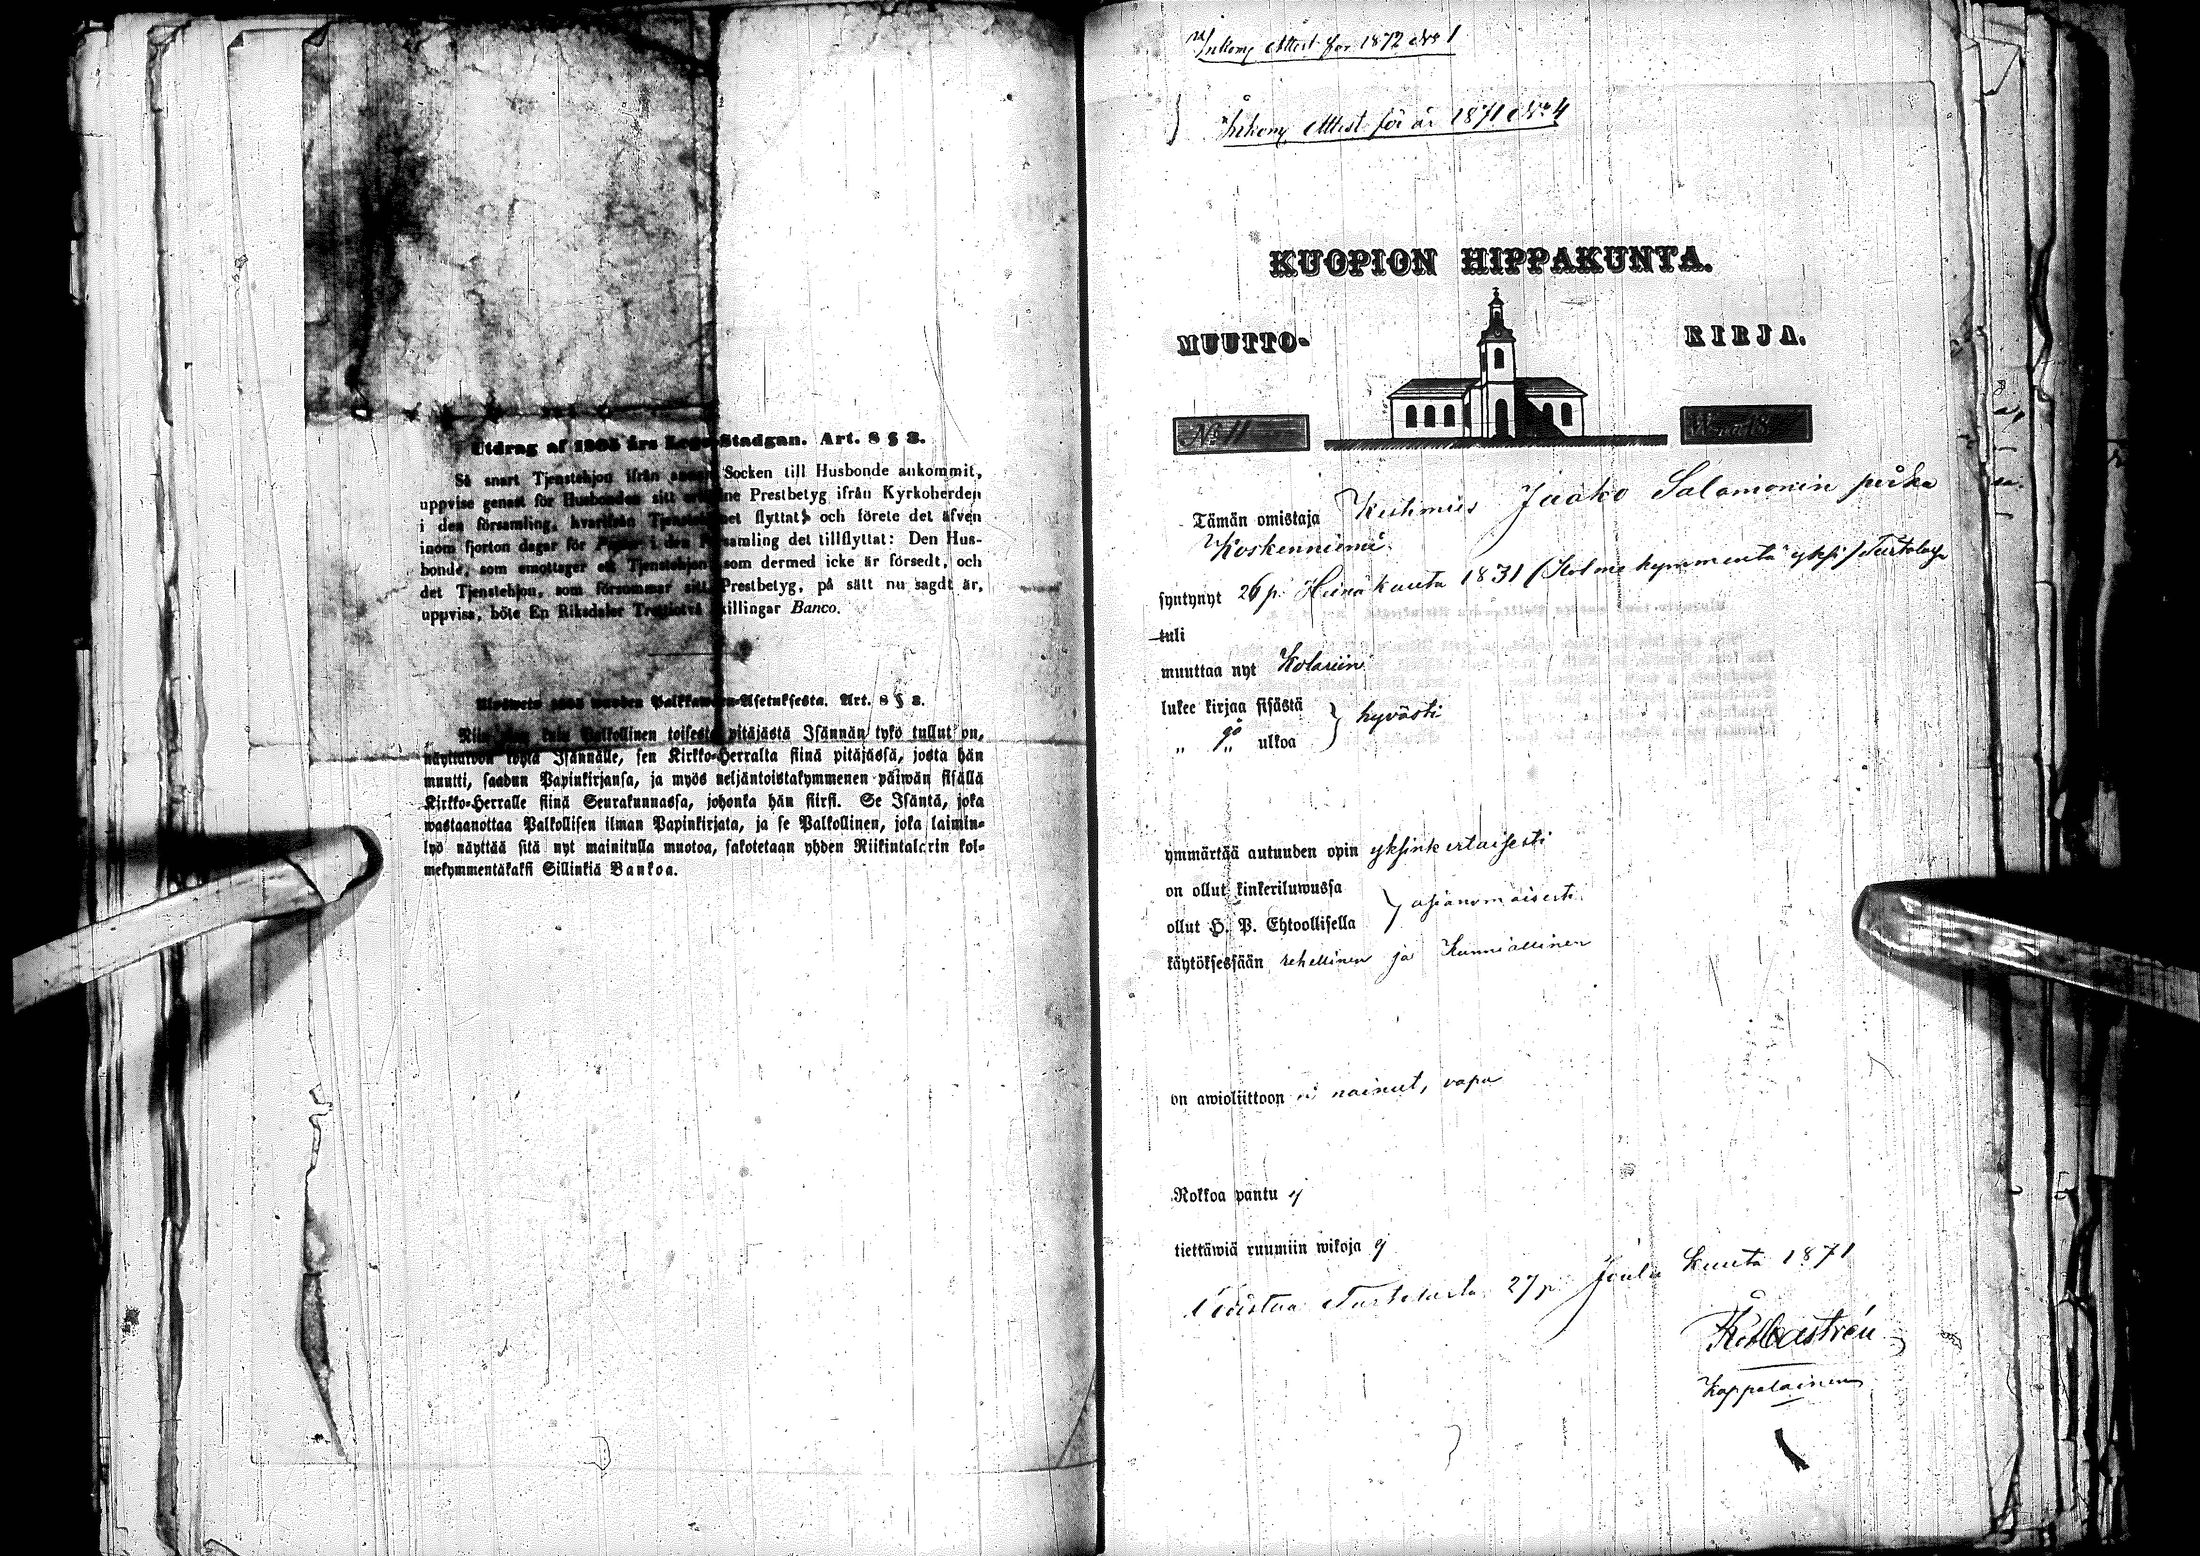 Utdrag af 1805 års Lego-Stadgan. Art. 8 § 3.
Så snart Tjenstehjon ifrån annan Socken till Husbonde ankommit,
uppvise genast för Husbonden sitt Prestbetyg ifrån Kyrkoherden
i den församling, hvarifrån Tjenstehjonet flyttat, och förete det äfven
inom fjorton dagar för i den Församling det tillflyttat: Den Hus-
bonde, som emottager ett Tjenstehjon, som dermed icke är försedt, och
det Tjenstehjon, som försummar sitt Prestbetyg, på sätt nu sagdt är,
uppvisa, böte En Riksdaler Trettiotvå skillingar Banco.
wuoden Palkkawäen-Asetuksesta. Art. 8 § 3.
Niin kuin Palkollinen toisesta pitäjästä Isännän tykö tullut on,
näyttäköön Isännälle, sen Kirkko-Herralta siinä pitäjässä, josta hän
muutti, saadun Papinkirjansa, ja myös neljäntoistakymmenen päiwän sisällä
Kirkko-Herralle siinä Seurakunnassa, johonka hän siirsi. Se Isäntä, joka
wastaanottaa Palkollisen ilman Papinkirjata, ja se Palkollinen, joka laimin-
lyö näyttää sitä nyt mainitulla muotoa, sakotetaan yhden Riikintalerin kol-
mekymmentäkaksi Sillinkiä Bankoa.
Inkom. Attest för 1872 No 1
Inkom. Attest för år 1871 No 4
KUOPION HIPPAKUNTA.
MUUTTO- KIRJA.
No 11
Tämän omistaja Jaako Salomonin poika
Koskenniemi
syntynyt 26 p. Heinäkuuta 1831 (Kolme kymmentä yksi) Turtolasa
tuli
muuttaa nyt Kolariin
lukee kirjaa sisästä } hyvästi
„ „ ulkoa
ymmärtää autuuden opin yksinkertaisesti
on ollut kinkeriluwussa } asianomaisesti
ollut H. P. Ehtoollisella
käytöksessään rehellinen ja Kunniallinen
on awioliittoon ei nainut, vapa
Rokkoa pantu ej
tiettäwiä ruumiin wikoja ej
Todistaa Turtolasta 27 p. Joulu Kuuta 1871
Castrén
Kappalainen